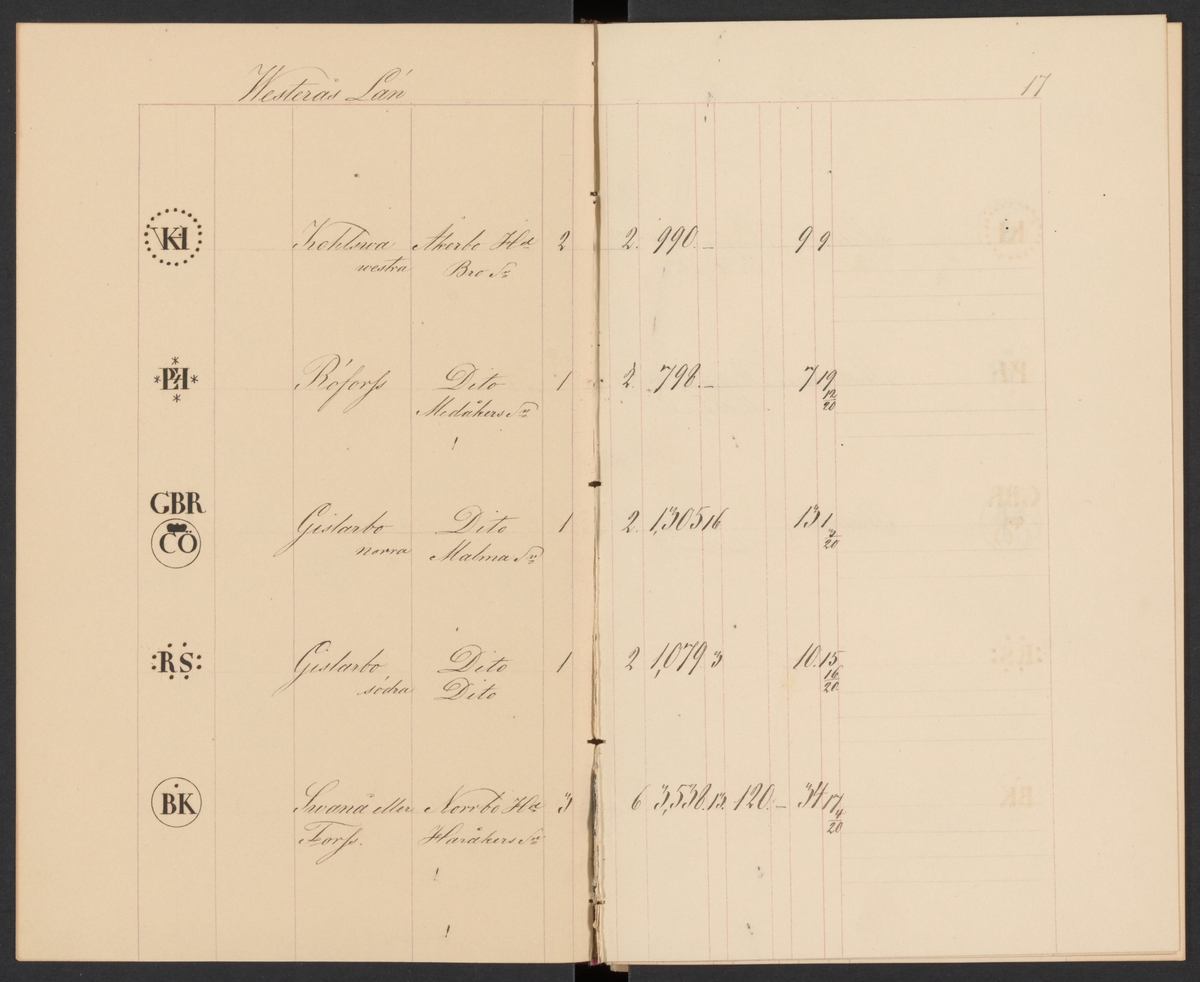 Westerås Län
17
VKI Kohlswa Åkerbo Hd 2 2. 990. — 9 9
westra Bro Sn
Röforss Dito 1 2. 798. — 7 19
Medåkers Sn 12/20
GBR
CÖ Gislarbo Dito 1 2. 1,305 16 13 1
norra Malma Sn 3/20
:RS: Gislarbo Dito 1 2 1,079. 3 10. 15
södra Dito 16/20
BK Swanå eller Norrbo Hd 3 6 3,538. 13. 120. — 34 17
Forss. Haråkers Sn 4/20